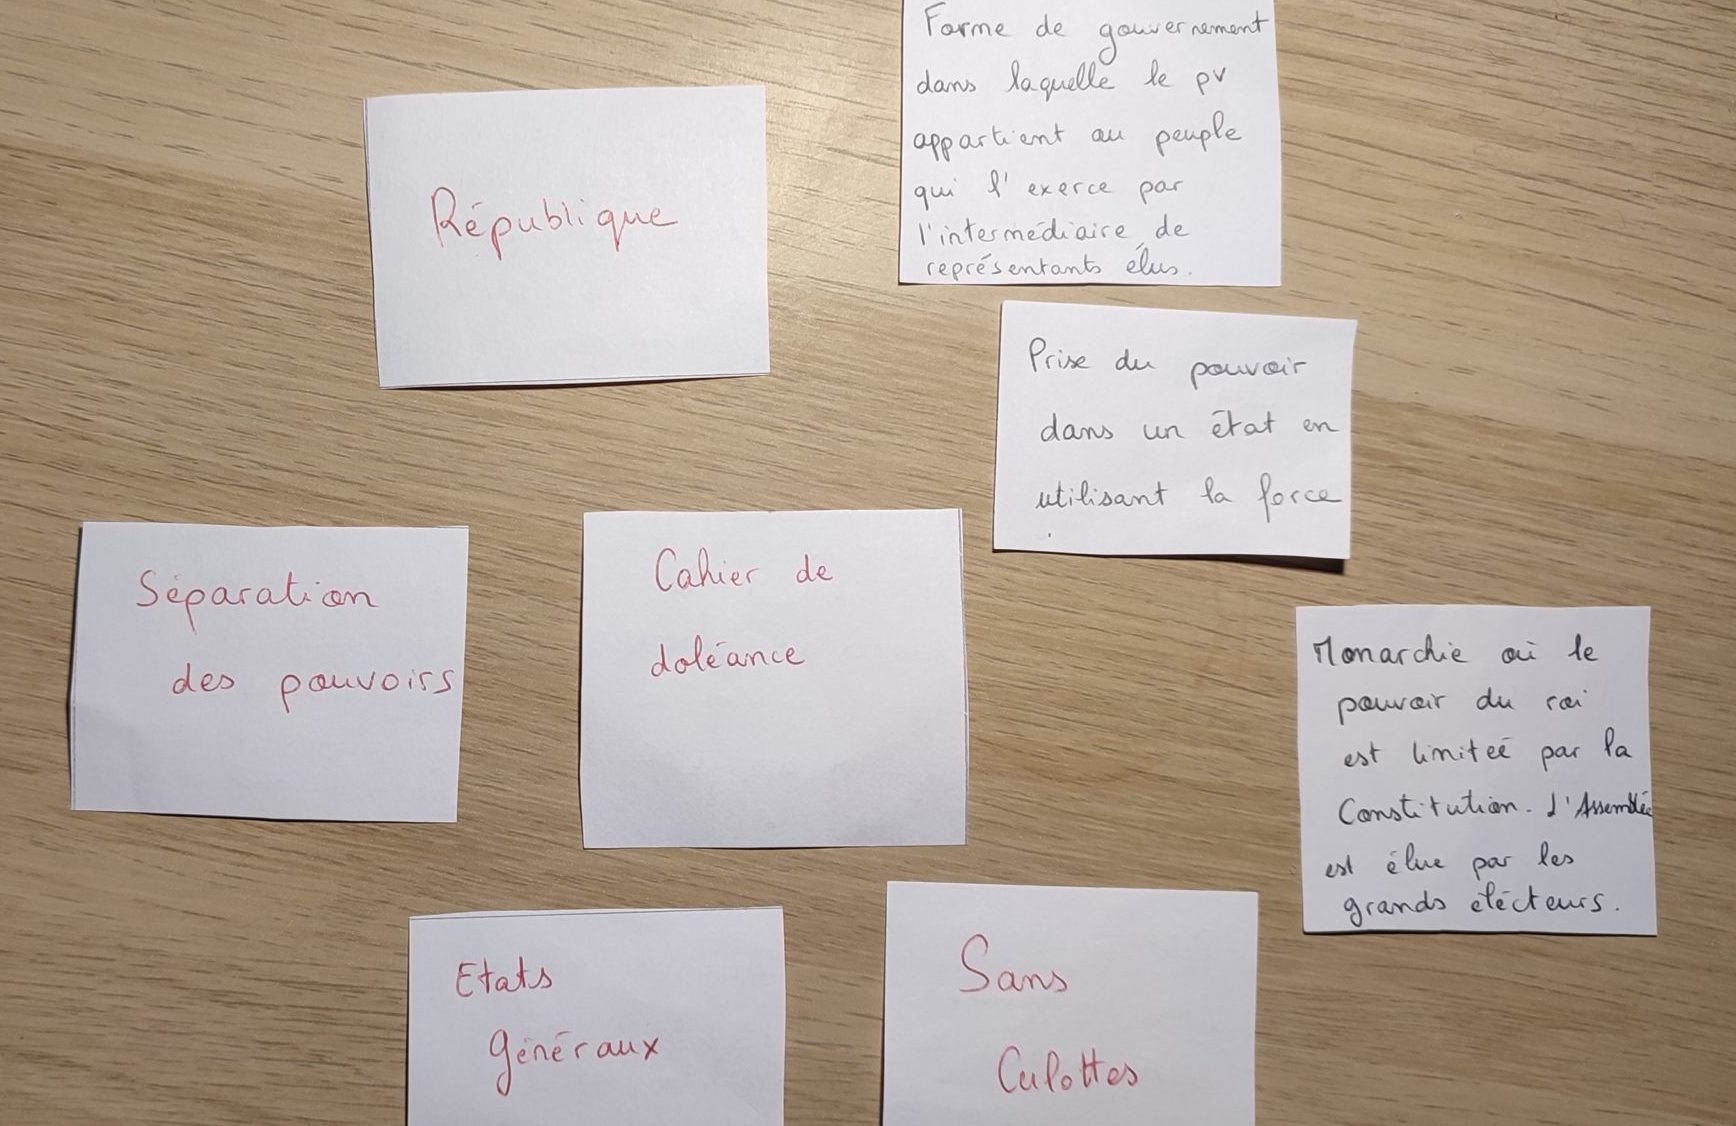 République
Forme de gouvernement
dans laquelle le pv
appartient au peuple
qui l'exerce par
l'intermédiaire de
représentants élus.
Prise du pouvoir
dans un état en
utilisant la force
Séparation
des pouvoirs
Cahier de
doléance
Monarchie où le
pouvoir du roi
est limiteé par la
Constitution. L'Assemblée
est élue par les
grands élécteurs.
Etats
généraux
Sans
Culottes